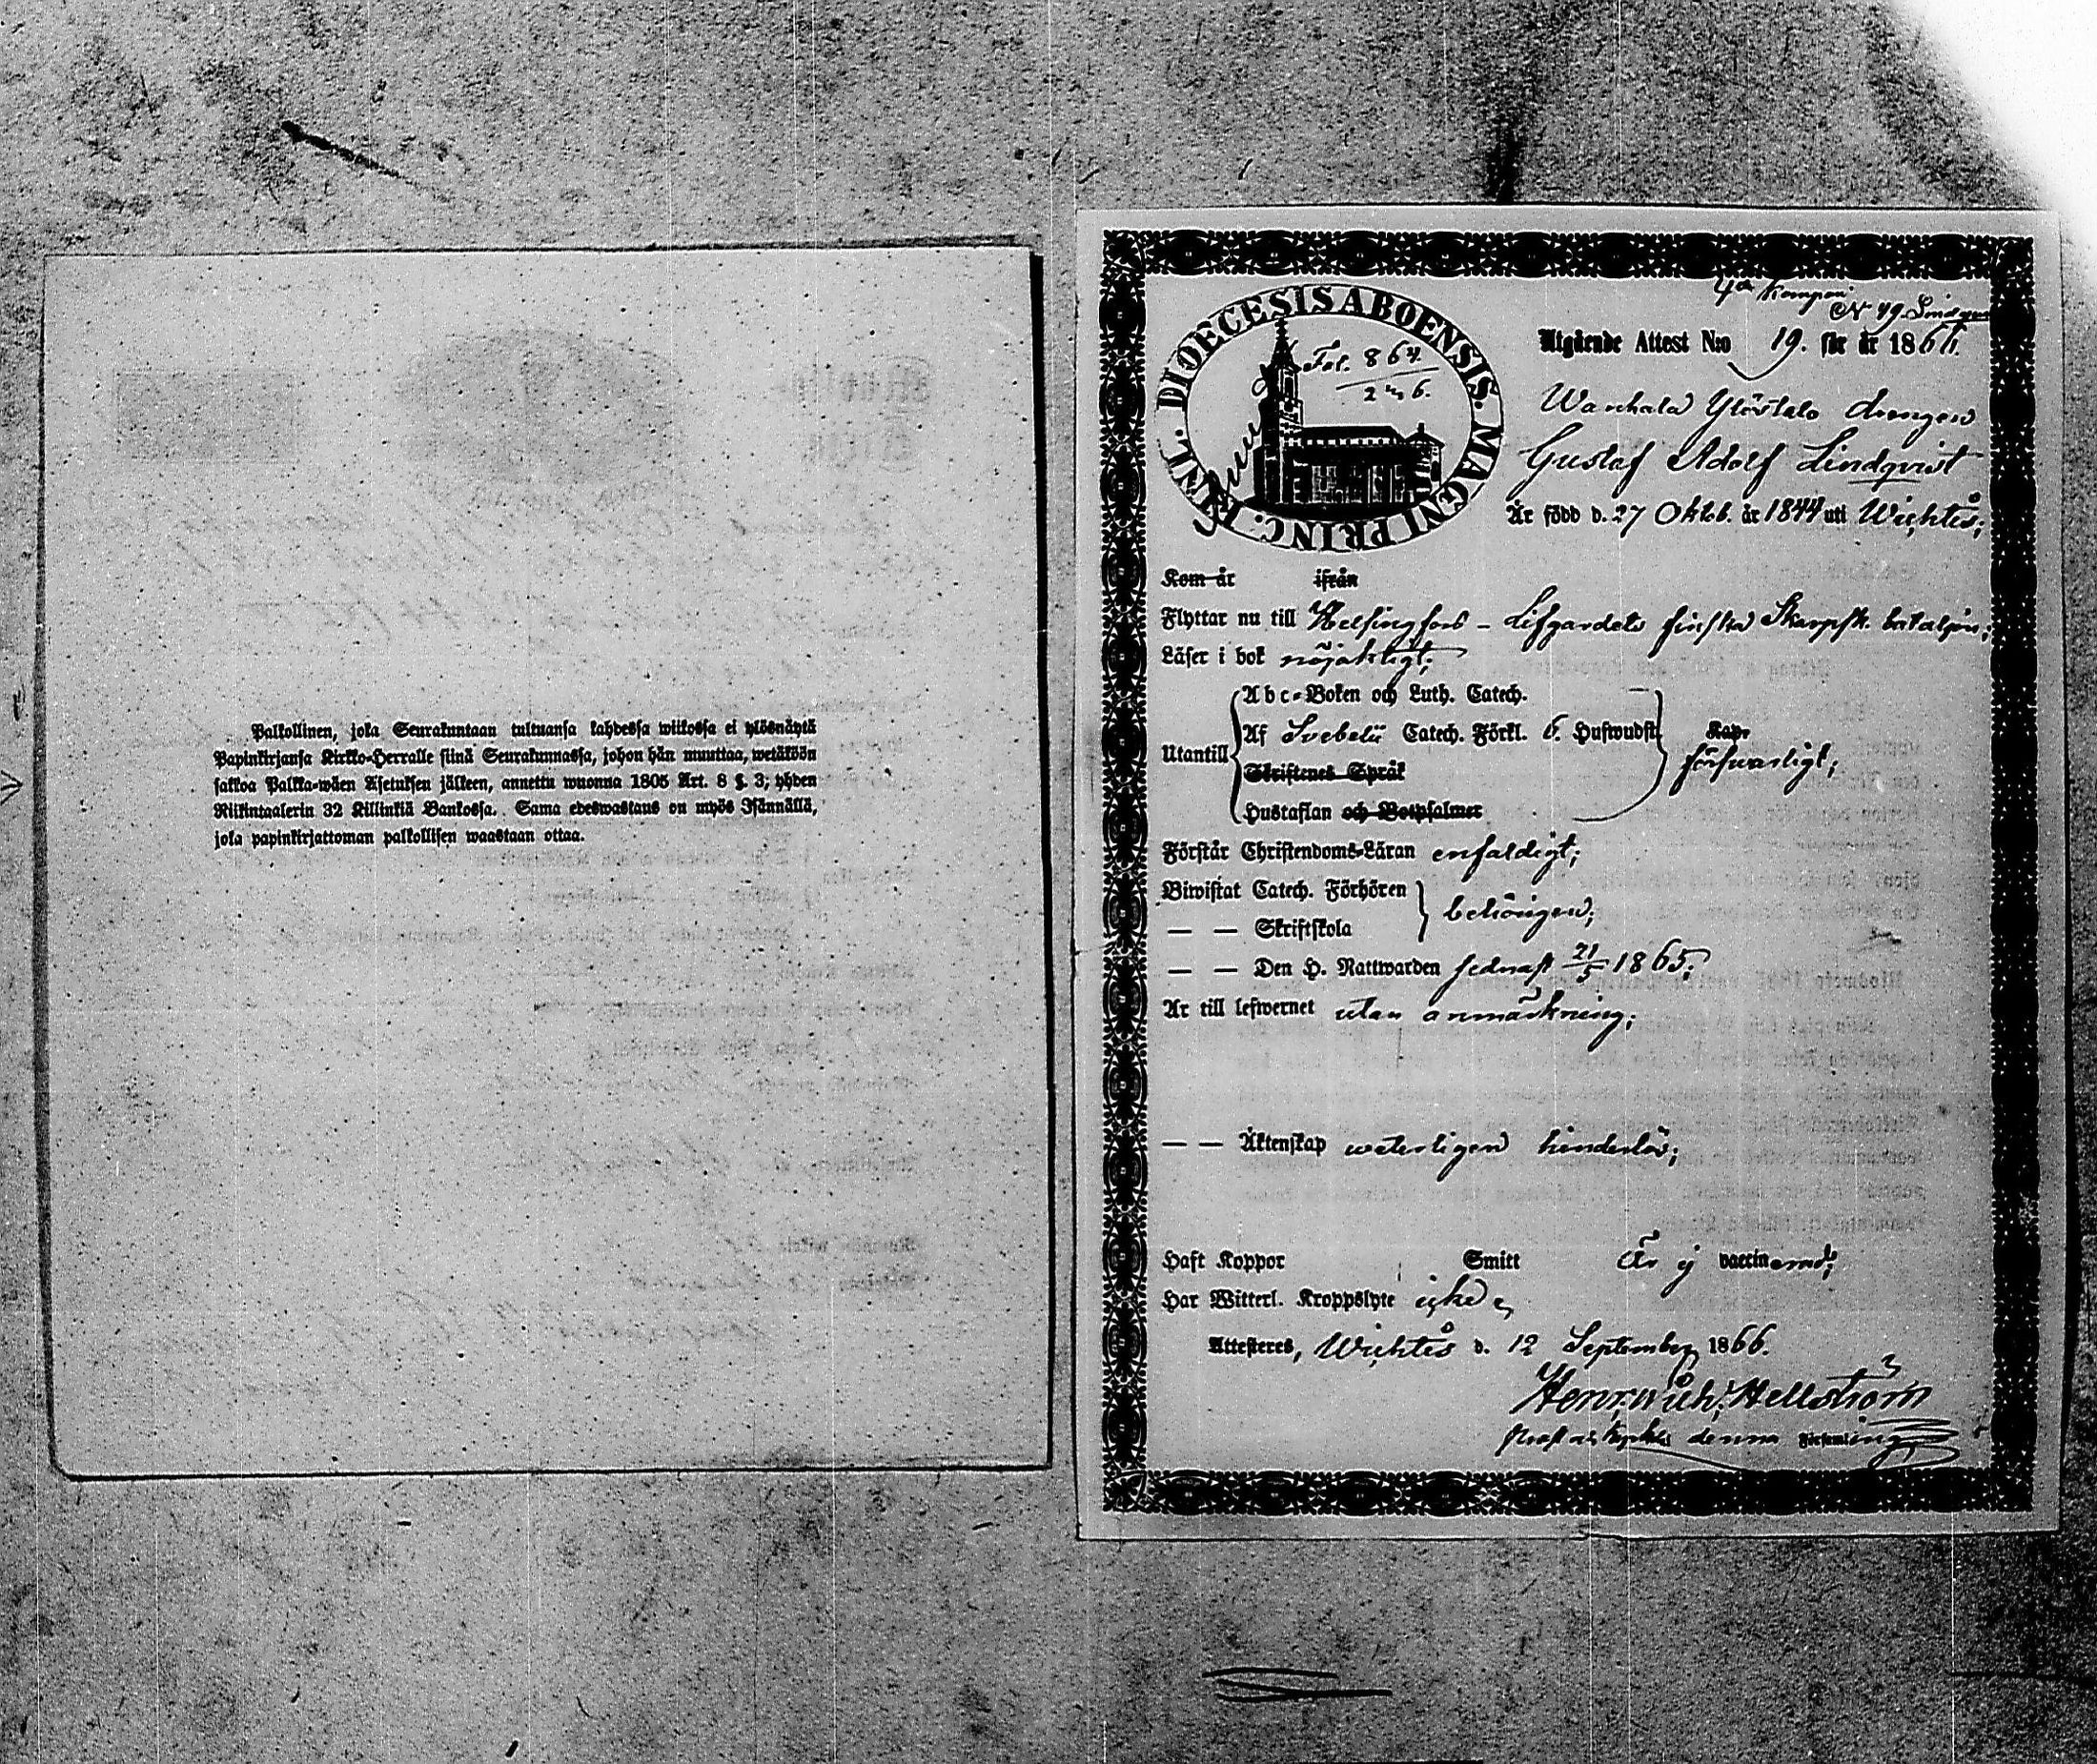 Palkollinen, joka Seurakuntaan tultuansa kahdessa wiikossa ei ylösnäytä
Papinkirjansa Kirkko-Herralle siinä Seurakunnassa, johon hän muuttaa, wetäköön
sakkoa Palkka-wäen Asetuksen jälkeen, annettu wuonna 1805 Art. 8 §. 3; yhden
Riikintaalerin 32 Killinkiä Bankossa. Sama edeswastaus on myös Isännällä,
joka papinkirjattoman palkollisen waastaan ottaa.
4de Kompani
N 49. Lindqvist
DIOECESIS ABOENSIS. MAGNI PRINC. FINL.
Fol. 864.
2 6.
Utgående Attest N:o 19. för år 1866.
Wanhala Ylöstalo drengen
Gustaf Adolf Lindqvist
Är född d. 27 Oktob. år 1844 uti Wichtis;
Kom år ifrån
Flyttar nu till Helsingfors - Lifgardets finska Skarpsk. bataljon;
Läser i bok nöjaktigt;
Abc-Boken och Luth. Catech.
Utantill Af Svebelii Catech. Förkl. 6. Hufwudst. Kap.
försvarligt;
Skriftenes Språk
Hustaflan och Botpsalmer
Förstår Christendoms-Läran enfaldigt;
Biwistat Catech. Förhören
behörigen;
— — Skriftskola
— — Den H. Nattwarden sednast 21/5 1865;
Är till lefwernet utan anmärkning;
— — Äktenskap weterligen hinderlös;
Haft Koppor Smitt Är ej vaccinerad;
Har Witterl. Kroppslyte icke
Attesteres, Wichtis d. 12 September 1866.
Henr. Wilh. Hellström
denna Församling